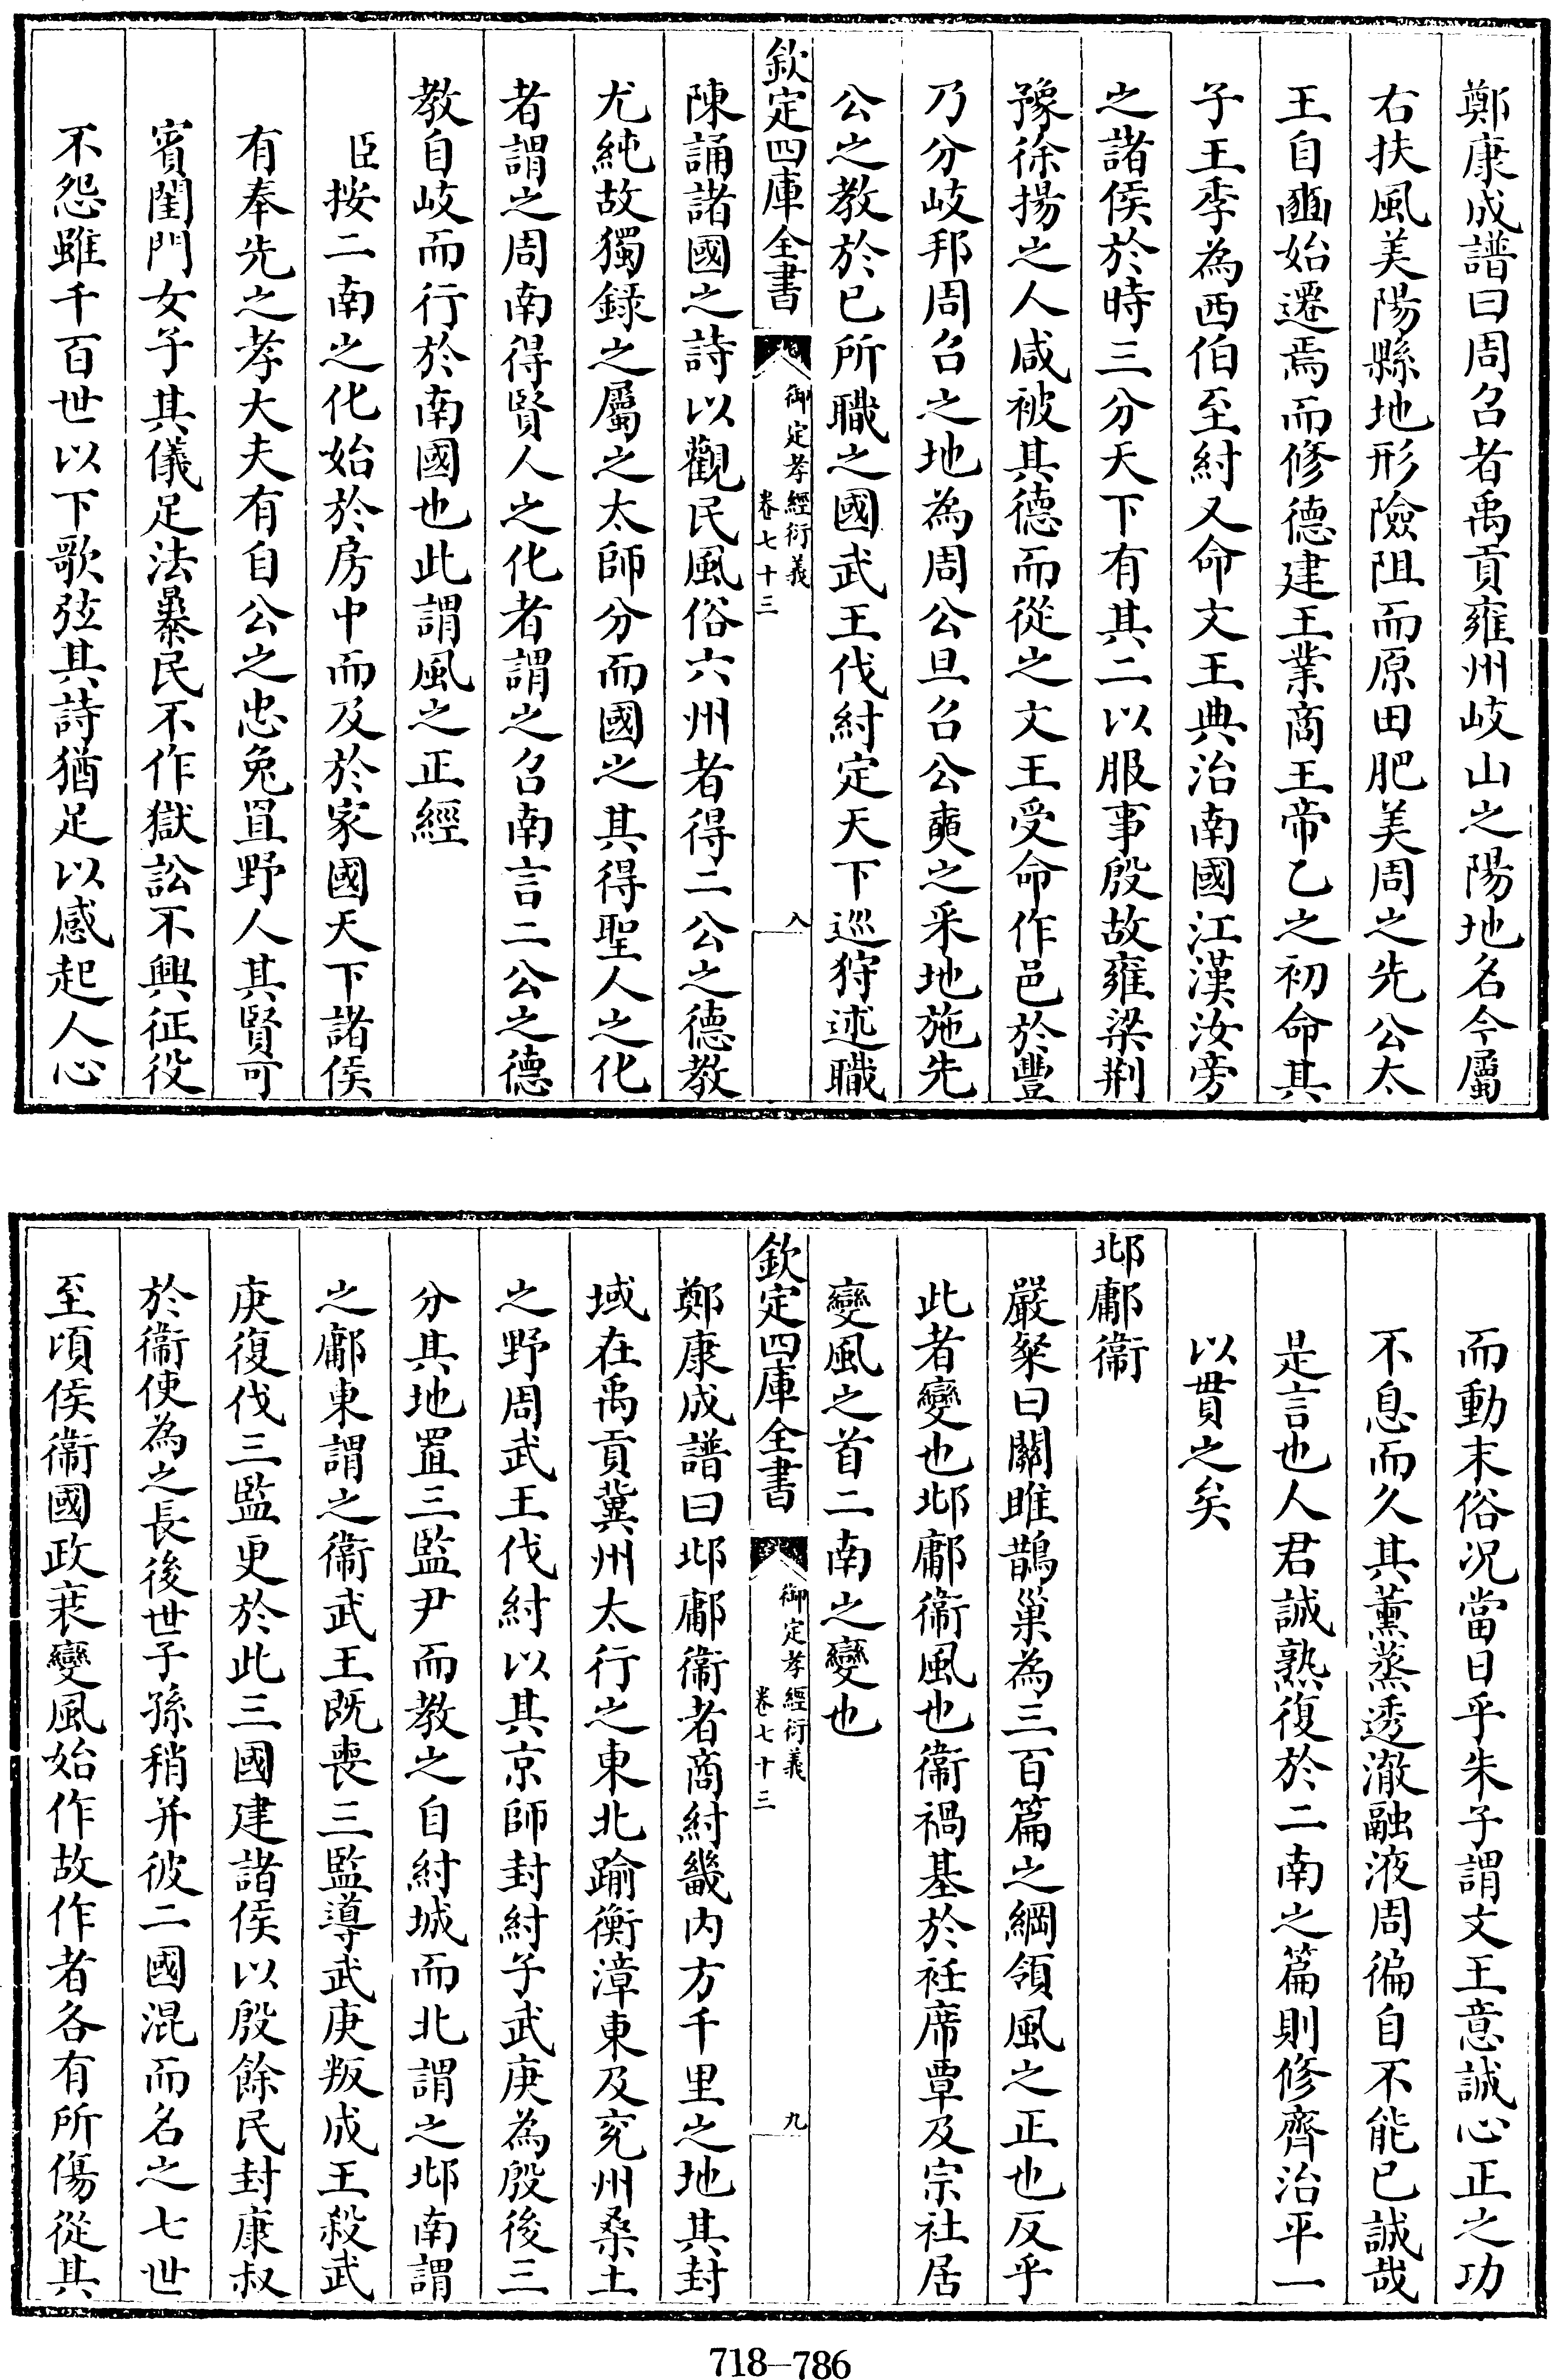 鄭康成譜曰周召者禹貢雍州岐山之陽地名今屬
右扶風美陽縣地形險阻而原田肥美周之先公太
王自豳始遷焉而修德建王業商王帝乙之初命其
子王季為西伯至紂又命文王典治南國江漢汝旁
之諸侯於時三分天下有其二以服事殷故雍梁荆
豫徐揚之人咸被其德而從之文王受命作邑於豐
乃分岐邦周召之地為周公旦召公奭之采地施先
公之教於已所職之國武王伐紂定天下巡狩述職
欽定四庫全書
御定孝經衍義
卷七十三
八
陳誦諸國之詩以觀民風俗六州者得二公之德教
尤純故獨録之屬之太師分而國之其得聖人之化
者謂之周南得賢人之化者謂之召南言二公之德
教自岐而行於南國也此謂風之正經
臣按二南之化始於房中而及於家國天下諸侯
有奉先之孝大夫有自公之忠兔罝野人其賢可
賓閨門女子其儀足法暴民不作獄訟不興征役
不怨雖千百世以下歌弦其詩猶足以感起人心
而動末俗况當日乎朱子謂文王意誠心正之功
不息而久其薰蒸透澈融液周徧自不能已誠哉
是言也人君誠熟復於二南之篇則修齊治平一
以貫之矣
邶鄘衛
嚴粲曰關雎鵲巢為三百篇之綱領風之正也反乎
此者變也邶鄘衛風也衛禍基於衽席覃及宗社居
變風之首二南之變也
欽定四庫全書
御定孝經衍義
卷七十三
九
鄭康成譜曰邶鄘衛者商紂畿内方千里之地其封
域在禹貢冀州太行之東北踰衡漳東及兗州桑土
之野周武王伐紂以其京師封紂子武庚為殷後三
分其地置三監尹而教之自紂城而北謂之邶南謂
之鄘東謂之衛武王既喪三監導武庚叛成王殺武
庚復伐三監更於此三國建諸侯以殷餘民封康叔
於衛使為之長後世子孫稍并彼二國混而名之七世
至頃侯衛國政衰變風始作故作者各有所傷從其
718—786